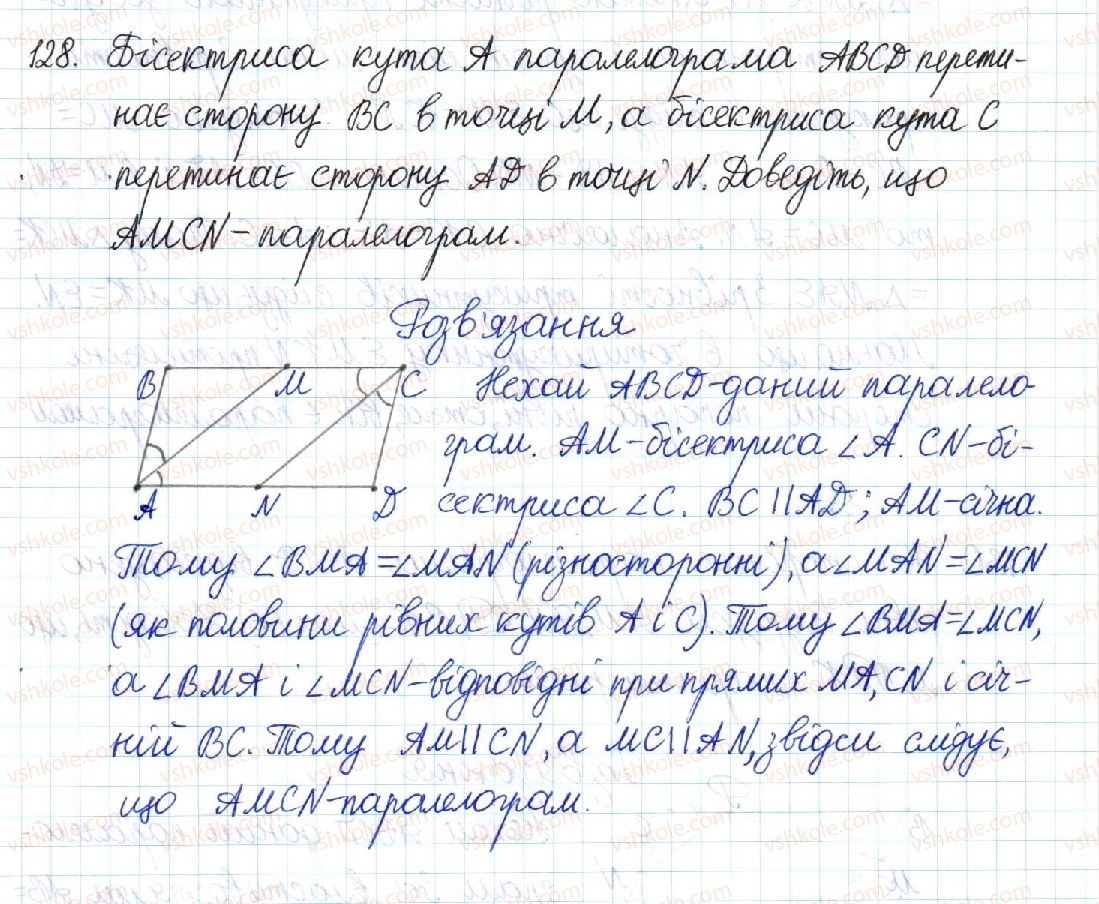 128. Бісектриса кута A паралелограма ABCD перети-
нає сторону BC в точці M, а бісектриса кута C
перетинає сторону AD в точці N. Доведіть, що
AMCN - паралелограм.
Розв'язання
B M C
A N D
Нехай ABCD-даний парале­ло-
грам. AM-бісектриса ∠A. CN-бі-
сектриса ∠C. BC || AD; AM-січна.
Тому ∠BMA=∠MAN (різносторонні), а ∠MAN=∠MCN
(як половини рівних кутів A і C). Тому ∠BMA=∠MCN,
а ∠BMA і ∠MCN-відповідні при прямих MA, CN і січ-
ній BC. Тому AM||CN, а MC||AN, звідси слідує,
що AMCN-паралелограм.
vshkole.com